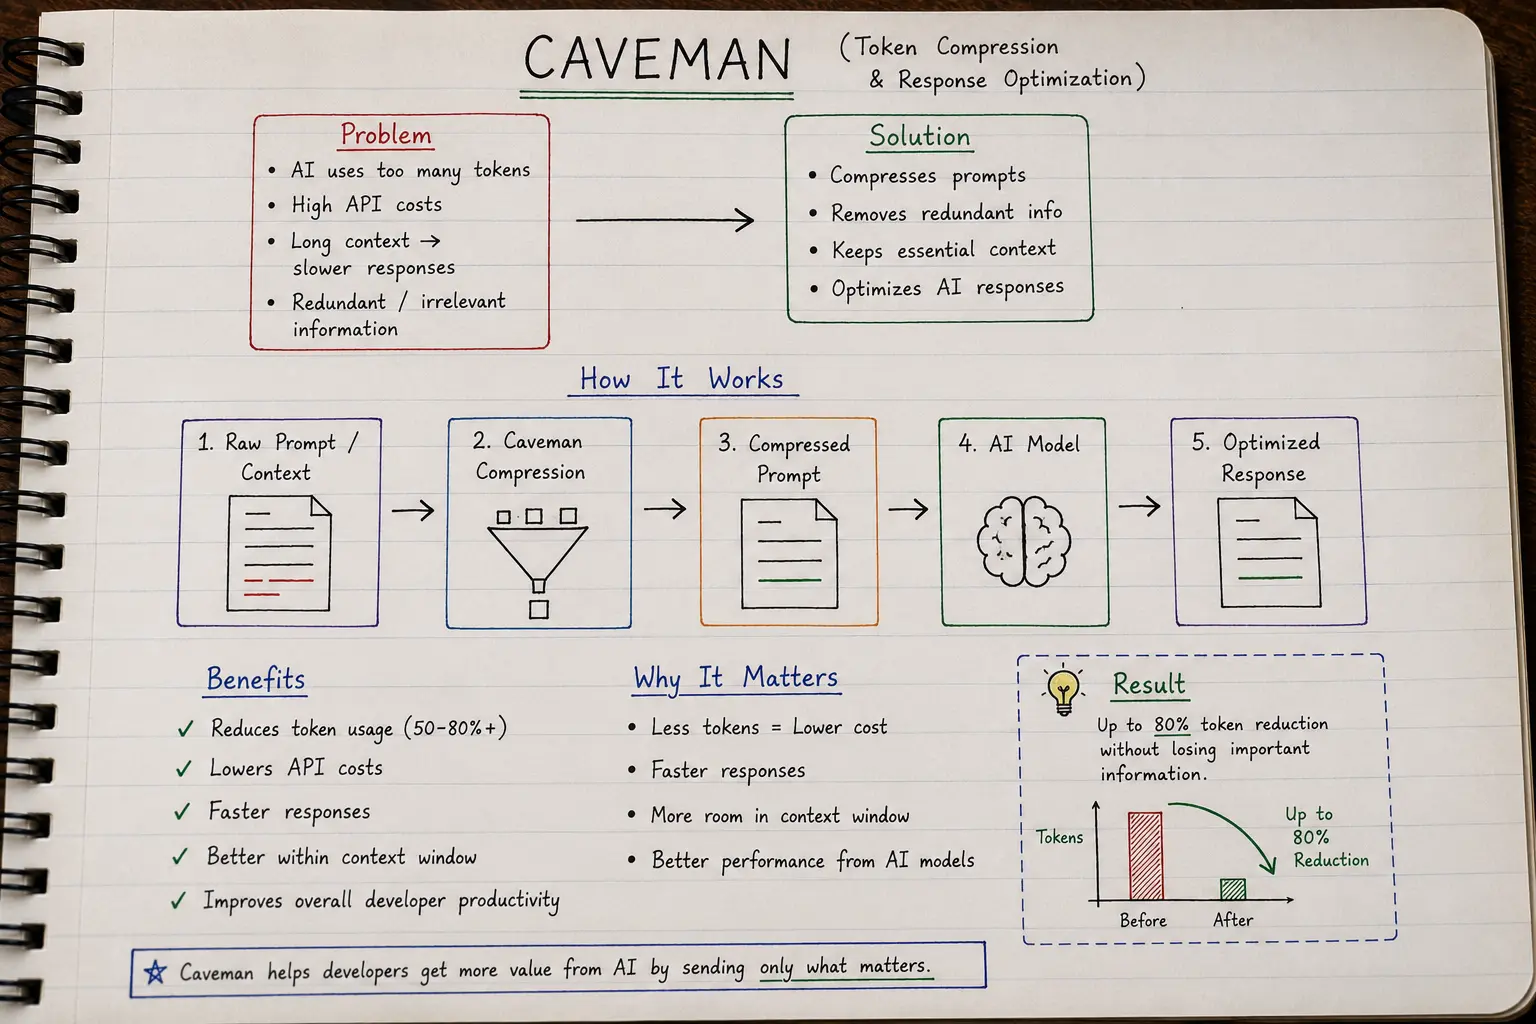 CAVEMAN
(Token Compression
& Response Optimization)
Problem
• AI uses too many tokens
• High API costs
• Long context →
slower responses
• Redundant / irrelevant
information
Solution
• Compresses prompts
• Removes redundant info
• Keeps essential context
• Optimizes AI responses
How It Works
1. Raw Prompt /
Context
2. Caveman
Compression
3. Compressed
Prompt
4. AI Model
5. Optimized
Response
Benefits
✓ Reduces token usage (50-80%+)
✓ Lowers API costs
✓ Faster responses
✓ Better within context window
✓ Improves overall developer productivity
Why It Matters
• Less tokens = Lower cost
• Faster responses
• More room in context window
• Better performance from AI models
Result
Up to 80% token reduction
without losing important
information.
Tokens
Up to
80%
Reduction
Before
After
☆ Caveman helps developers get more value from AI by sending only what matters.